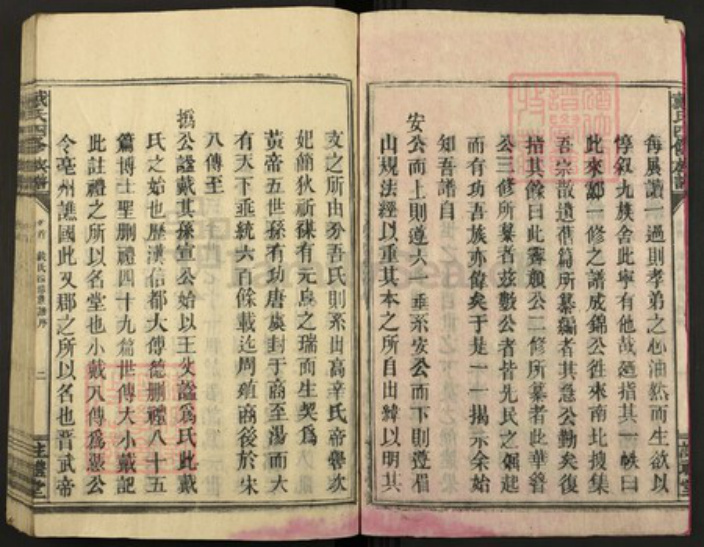 每展讀一過則孝弟之心油然而生欲以
惇叙九族舍此寧有他哉迺指其一帙曰
此來鄒一修之譜成錦公徃來南北搜集
吾宗散遺舊篇所纂編者其急公勤矣復
指其餘曰此霽顏公二修所纂者此華
公三修所纂者茲數公者皆先民之
而有功吾族亦偉矣于是一一揭示余始
知吾譜自
安公而上則遵大一垂系安公而下則遵眉
山規法經以重其本之所自出緯以明其
支之所由分吾氏則系出高辛氏帝嚳次
妃簡狄祈禖有元鳥之瑞而生契爲
黃帝五世孫有功唐虞封于商至湯而大
有天下垂統六百餘載迄周殖商後於宋
八傳至
撝公諡戴其孫宣公始以王父諡爲氏此戴
氏之始也歷漢信都大傅德刪禮八十五
篇博士聖刪禮四十九篇世傳大小戴記
此註禮之所以名堂也小戴八傳爲憑公
令亳州譙國此又郡之所以名也晉武帝
戴氏四修族譜
戴氏四修族譜序
二
註禮堂